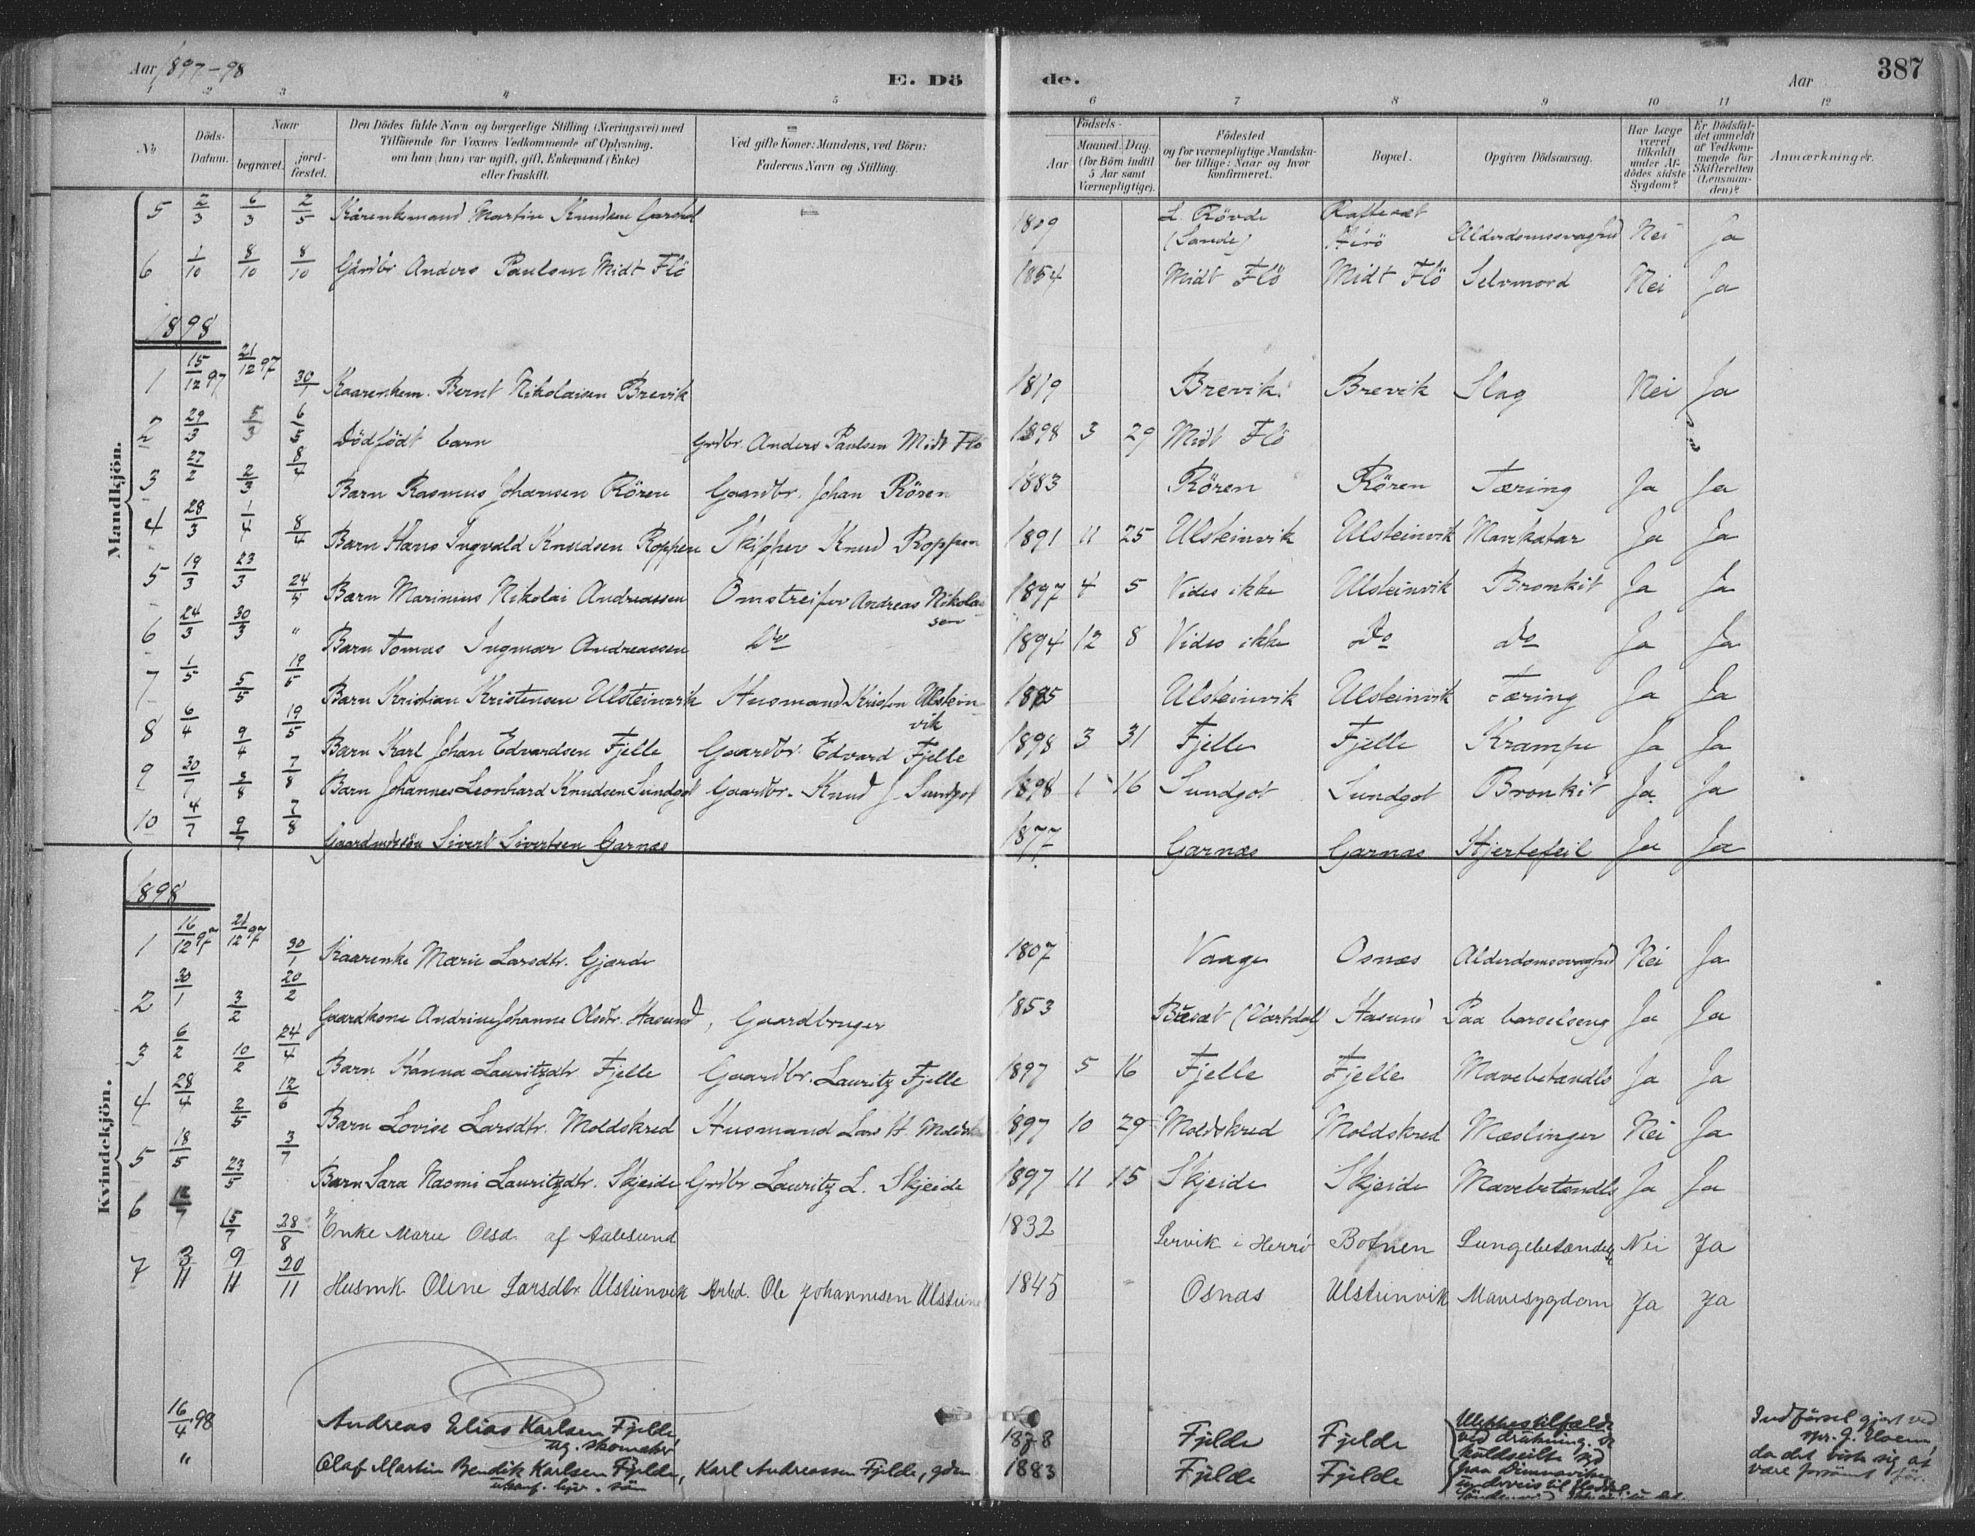 Aar 1897-98
E. Dö de.
Aar
387
1 2 3 4 5 6 7 8 9 10 11 12
No
Döds-Datum.
Naar
begravet.
jord-fæstet.
Den Dödes fulde Navn og borgerlige Stilling (Næringsvei) med
Tilföiende for Voxnes Vedkommende af Oplysning,
om han (hun) var ugift, gift, Enkemand (Enke)
eller fraskilt.
Ved gifte Koner: Mandens, ved Börn:
Faderens Navn og Stilling.
Födsels-
Aar
Maaned. Dag.
(for Börn indtil
5 Aar samt
Værnepligtige).
Födested
og for værnepligtige Mandska-
ber tillige: Naar og hvor
konfirmeret.
Bopæl.
Opgiven Dödsaarsag.
Har Læge
været
tilkaldt
under Af-
dödes sidste
Sygdom?
Er Dödsfal-
det anmeldt
af Vedkom-
mende for
Skifteretten
(Lensman-
den)?
Anmærkninger.
Mandkjön.
5 2/3 6/3 2/5 Kårenkemand Martin Knudsen Garshol 1809 L. Rövde (Sande) Raftesæt Herö Alderdomssvaghed Nei Ja
6 1/10 8/10 8/10 Gårdbr Anders Paulsen Midt Flö 1854 Midt Flö Midt Flö Selvmord Nei Ja
1898
1 15/12 97 21/12 97 30/1 Kaarenkem. Bernt Nikolaisen Brevik 1819 Brevik Brevik Slag Nei Ja
2 29/3 5/3 6/5 Dödfödt barn Grdbr. Anders Paulsen Midt Flö 1898 3 29 Midt Flö
3 27/2 2/3 8/4 Barn Rasmus Johansen Rören Gaardbr. Johan Rören 1883 Rören Rören Tæring Ja Ja
4 28/3 1/4 8/4 Barn Hans Ingvald Knudsen Roppen Skipper Knud Roppen 1891 11 25 Ulsteinvik Ulsteinvik Mavekatar Ja Ja
5 19/3 23/3 24/5 Barn Marinius Nikolai Andreassen Omstreifer Andreas Nikolaisen 1897 4 5 Vides ikke Ulsteinvik Bronkit Ja Ja
6 24/3 30/3 " Barn Tomas Ingmar Andreassen Do 1894 12 8 Vides ikke Do do Ja Ja
7 1/5 5/5 19/5 Barn Kristian Kristensen Ulsteinvik Husmand Kristen Ulsteinvik 1885 Ulsteinvik Ulsteinvik Tæring Ja Ja
8 6/4 9/4 19/5 Barn Karl Johan Edvardsen Fjelle Gaardbr. Edvard Fjelle 1898 3 31 Fjelle Fjelle Krampe Ja Ja
9 30/7 3/8 7/8 Barn Johannes Leonhard Knudsen Sundgot Gaardbr. Knud J. Sundgot 1898 1 16 Sundgot Sundgot Bronkit Ja Ja
10 4/7 9/7 7/8 Sivert Sivertsen Garnæs 1877 Garnæs Garnæs Hjertefeil Ja Ja
Kvindekjön.
1898
1 16/12 97 21/12 97 30/1 Kaarenke Marie Larsdtr. Gjærde 1807 Vaage Osnæs Alderdomssvaghed Nei Ja
2 30/1 3/2 20/2 Gaardkone Andrine Johanne Olsdtr. Hasund, Gaardbruger 1853 (Vartdal) Hasund Paa barselseng Ja Ja
3 6/2 10/2 24/4 Barn Hanna Lauritzdtr. Fjelle Gaardbr. Lauritz Fjelle 1897 5 16 Fjelle Fjelle Mavebetændls Ja Ja
4 28/4 2/5 12/6 Barn Lovise Larsdtr. Moldskred Husmand Lars H. Moldsk 1897 10 29 Moldskred Moldskred Mæslinger Nei Ja
5 18/5 23/5 3/7 Barn Sara Naomi Lauritzdtr. Skjeide Grdbr Lauritz L. Skjeide 1897 11 15 Skjeide Skjeide Mavebetændls Ja Ja
6 12/7 15/7 28/8 Enke Marie Olsd. af Aalesund 1832 Lervik i Herrö Botnen Lungebetændelse Nei Ja
7 3/11 9/11 20/11 Husmk. Oline Larsdtr. Ulsteinvik Arbd. Ole Johannesen Ulstein 1845 Osnæs Ulsteinvik Mavesygdom Ja Ja
16/4 98 Andreas Elias Karlsen Fjelde, ug. skomaker 1878 Fjelde Fjelde Ulykkestilfælde
ved drukning. De
kuldseilte
Indförsel gjort ved
spr. J.
da det viste sig at
være forsömt för.
" Olaf Martin Bendik Karlsen Fjelde, Karl Andreassen Fjelde, 1883 Fjelde Fjelde